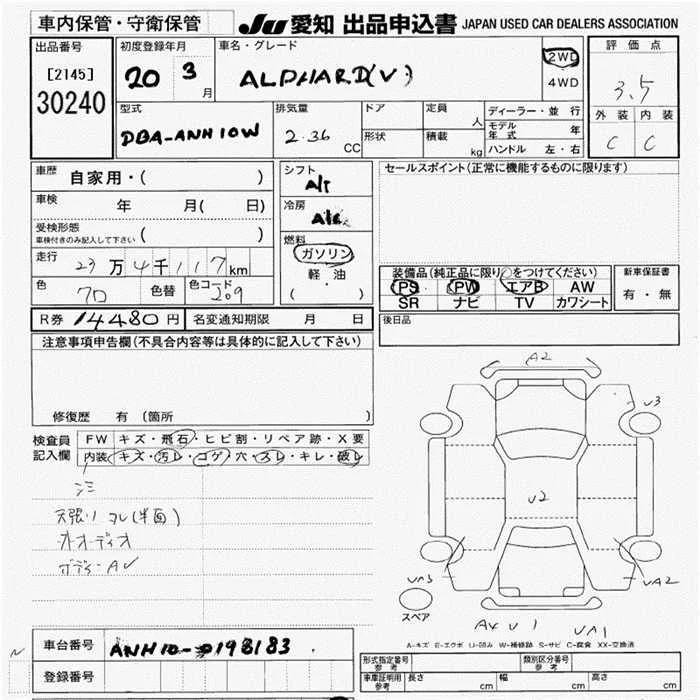 車内保管・守衛保管
JU 愛知 出品申込書 JAPAN USED CAR DEALERS ASSOCIATION
出品番号
[2145]
30240
初度登録年月
20 3 月
車名・グレード
ALPHARD(V)
2WD
4WD
評価点
3.5
外装 内装
C C
型式
DBA-ANH10W
排気量
2.36 CC
ドア
形状
定員
人
積載
kg
ディーラー・並行
モデル年式 年
ハンドル 左・右
車歴
自家用・( )
車検 年 月( 日)
受検形態
車検付きのみ記入して下さい ( )
走行
23万4千117km
色
70
色替
色コード
209
シフト
A/T
冷房
A/C
燃料
ガソリン
軽油
( ・ )
セールスポイント(正常に機能するものに限ります)
装備品(純正品に限り○をつけてください)
PS PW エアB AW
SR ナビ TV カワシート
新車保証書
有・無
R券 14480円 名変通知期限 月 日
後日品
注意事項申告欄(不具合内容等は具体的に記入して下さい)
修復歴 有(箇所 )
検査員
記入欄
FW キズ・飛石・ヒビ割・リペア跡・X要
内装 キズ・汚レ・コゲ穴・ヌレ・キレ・破レ
天張り ヌレ(半面)
オーディオ
ボディーAU
A2
U3
U2
UA3
UA2
A4 U1
UA1
スペア
A-キズ E-エクボ U-凹み W-補修跡 S-サビ C-腐食 XX-交換済
車台番号
ANH10-0198183
登録番号
形式指定番号
参考
類別区分番号
参考
車庫証明用
参考
長さ cm 幅 cm 高さ cm